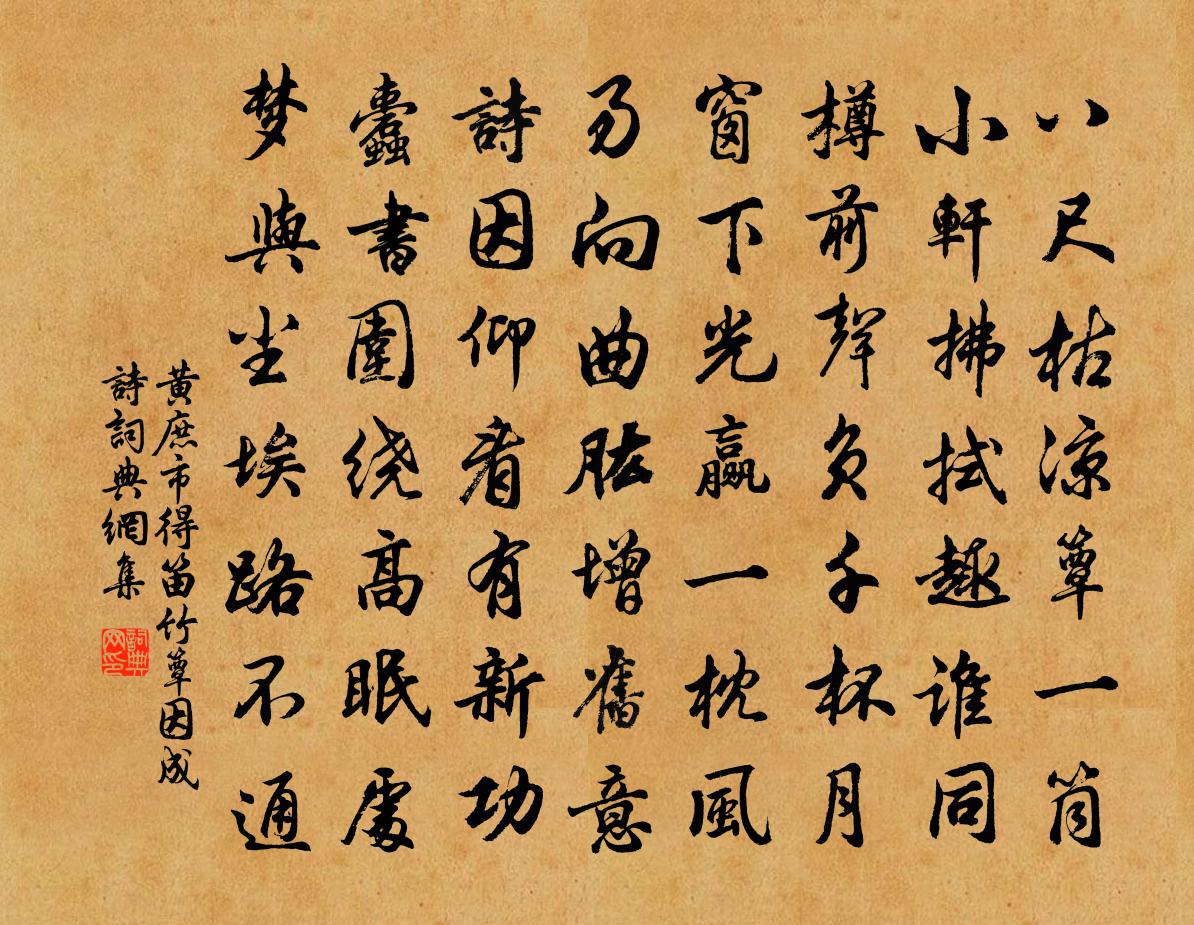 八尺枯涼簟一筒
小軒拂拭趣誰同
樽前聲負千杯月
窗下光贏一枕風
易向曲肱增舊意
詩因仰看有新功
蠹書圍绕高眠處
梦與尘埃路不通
黃庶市得笛竹簟因成
詩詞典網集
詞典
网印